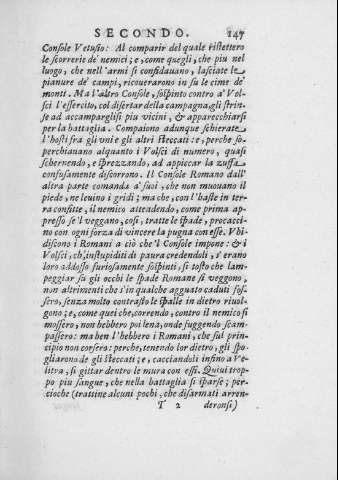 SECONDO. 147
Console Vetusio: Al comparir del quale ristettero
le scorrerie de' nemici; e, come quegli, che piu nel
luogo, che nell'armi si confidauano, lasciate le
pianure de' campi, ricouerarono in su le cime de'
monti. Ma l'altro Console, sospinto contro a' Vol-
sci l'essercito, col disertar della campagna, gli strin-
se ad accamparglisi piu vicini, & apparecchiarsi
per la battaglia. Compaiono adunque schierate
l'hosti fra gli vni e gli altri steccati: e, perche so-
perchiauano alquanto i Volsci di numero, quasi
schernendo, e sprezzando, ad appiccar la zuffa
confusamente discorrono. Il Console Romano dall'
altra parte comanda a' suoi, che non muouano il
piede, ne leuino i gridi; ma che, con l'haste in ter-
ra confitte, il nemico attendendo, come prima ap-
presso se'l veggano, cosi, tratte le spade, procacci-
no con ogni sforza di vincere la pugna con esse. Vbi-
discono i Romani a ciò che'l Console impone: & i
Volsci, ch'instupiditi di paura credendoli, s'erano
loro addosso furiosamente sospinti, si tosto che lam-
peggiar su gli occhi le spade Romane si veggono,
non altrimenti che s'in qualche agguato caduti fos-
sero, senza molto contrasto le spalle in dietro riuol-
gono; e, come quei che, correndo, contro il nemico si
mossero, non hebbero poi lena, onde fuggendo scam-
passero: ma ben l'hebbero i Romani, che sul prin-
cipio non corsero: perche, tenendo lor dietro, gli spo-
gliarono de gli steccati; e, cacciandoli infino a Ve-
litra, si gittar dentro le mura con essi. Quiui trop-
po piu sangue, che nella battaglia si sparse; per-
cioche (trattine alcuni pochi, che disarmati arren-
T 2 deronsi)